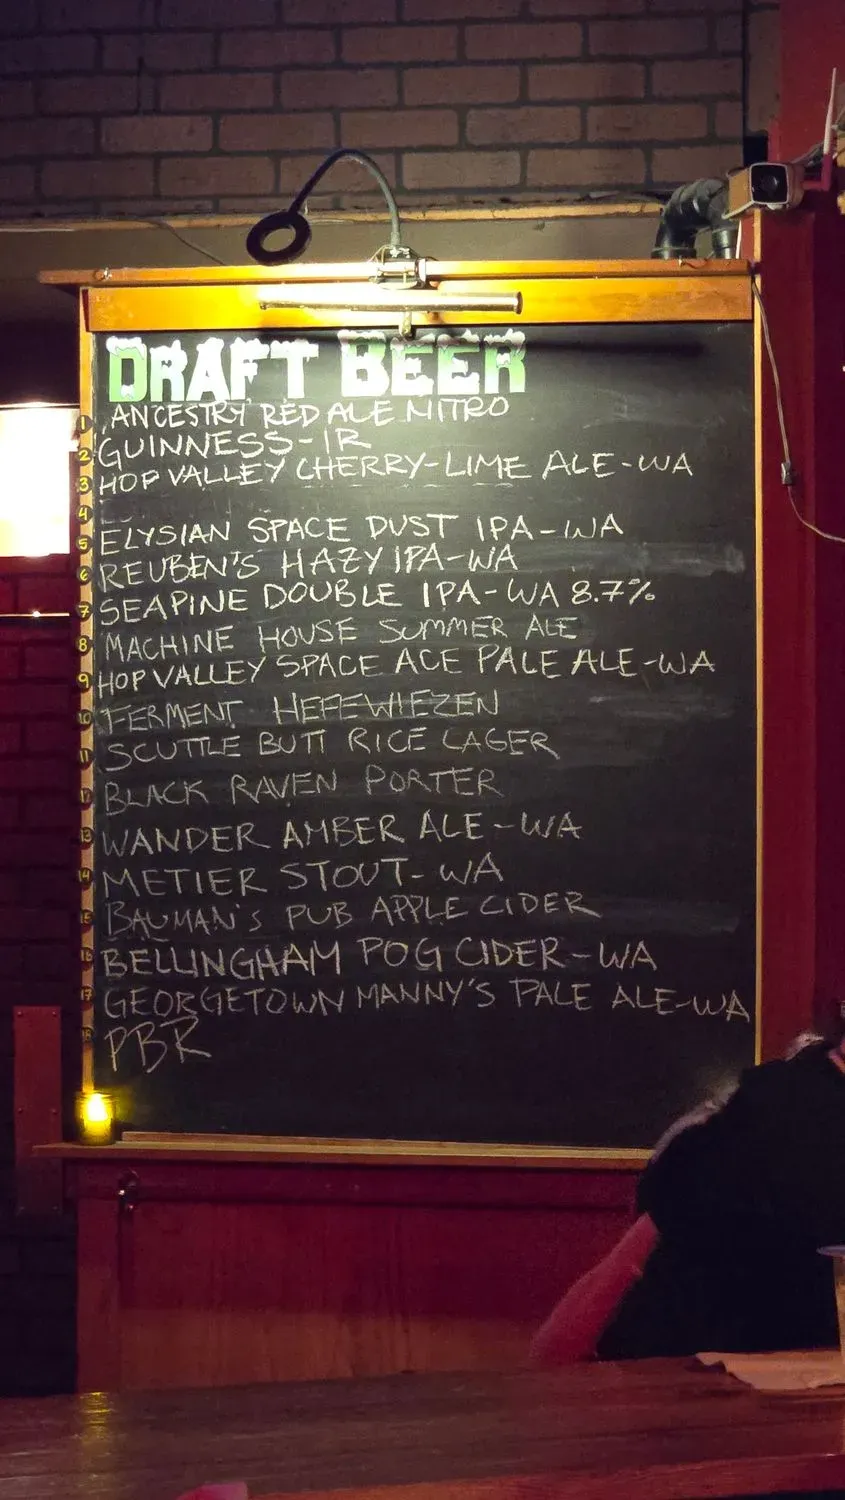 DRAFT BEER
1 ANCESTRY RED ALE NITRO
2 GUINNESS-IR
3 HOP VALLEY CHERRY-LIME ALE-WA
4
5 ELYSIAN SPACE DUST IPA-WA
6 REUBEN'S HAZY IPA-WA
7 SEAPINE DOUBLE IPA-WA 8.7%
8 MACHINE HOUSE SUMMER ALE
9 HOP VALLEY SPACE ACE PALE ALE-WA
10 FERMENT HEFEWIEZEN
11 SCUTTLE BUTT RICE LAGER
12 BLACK RAVEN PORTER
13 WANDER AMBER ALE-WA
14 METIER STOUT-WA
15 BAUMAN'S PUB APPLE CIDER
16 BELLINGHAM POG CIDER-WA
17 GEORGETOWN MANNY'S PALE ALE-WA
18 PBR